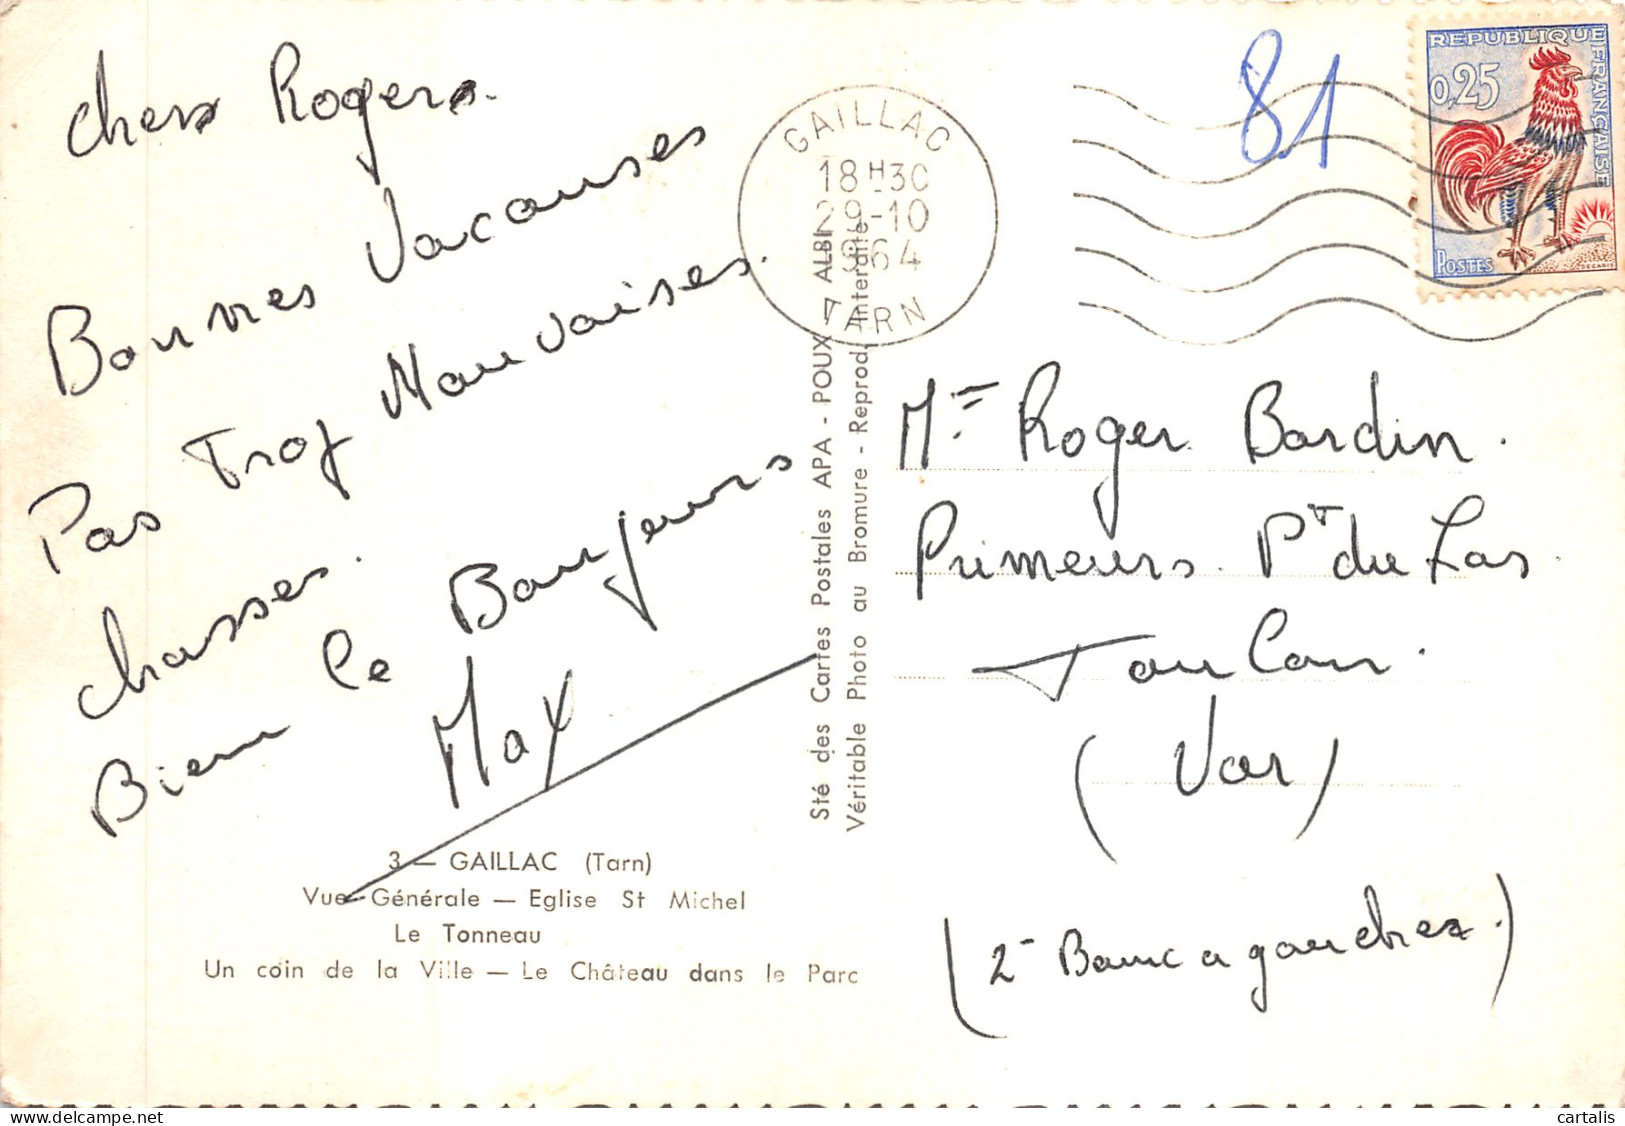 chers Rogers.
Bonnes Vacanses
Pas Trop Mauvaises.
chasses.
Bien le Bonjours
Max
3 — GAILLAC (Tarn)
Vue Générale — Eglise St Michel
Le Tonneau
Un coin de la Ville — Le Château dans le Parc
Sté des Cartes Postales APA - POUX - ALBI
Véritable Photo au Bromure - Reprod. Interdite
GAILLAC
18H30
29-10
1964
TARN
81
REPUBLIQUE FRANÇAISE
0,25
POSTES
DECARIS
Mr Roger Bardin.
Primeurs. Pt du Las
Toulon.
(Var)
(2e Banc a gauche.)
cartalis
delcampe.net